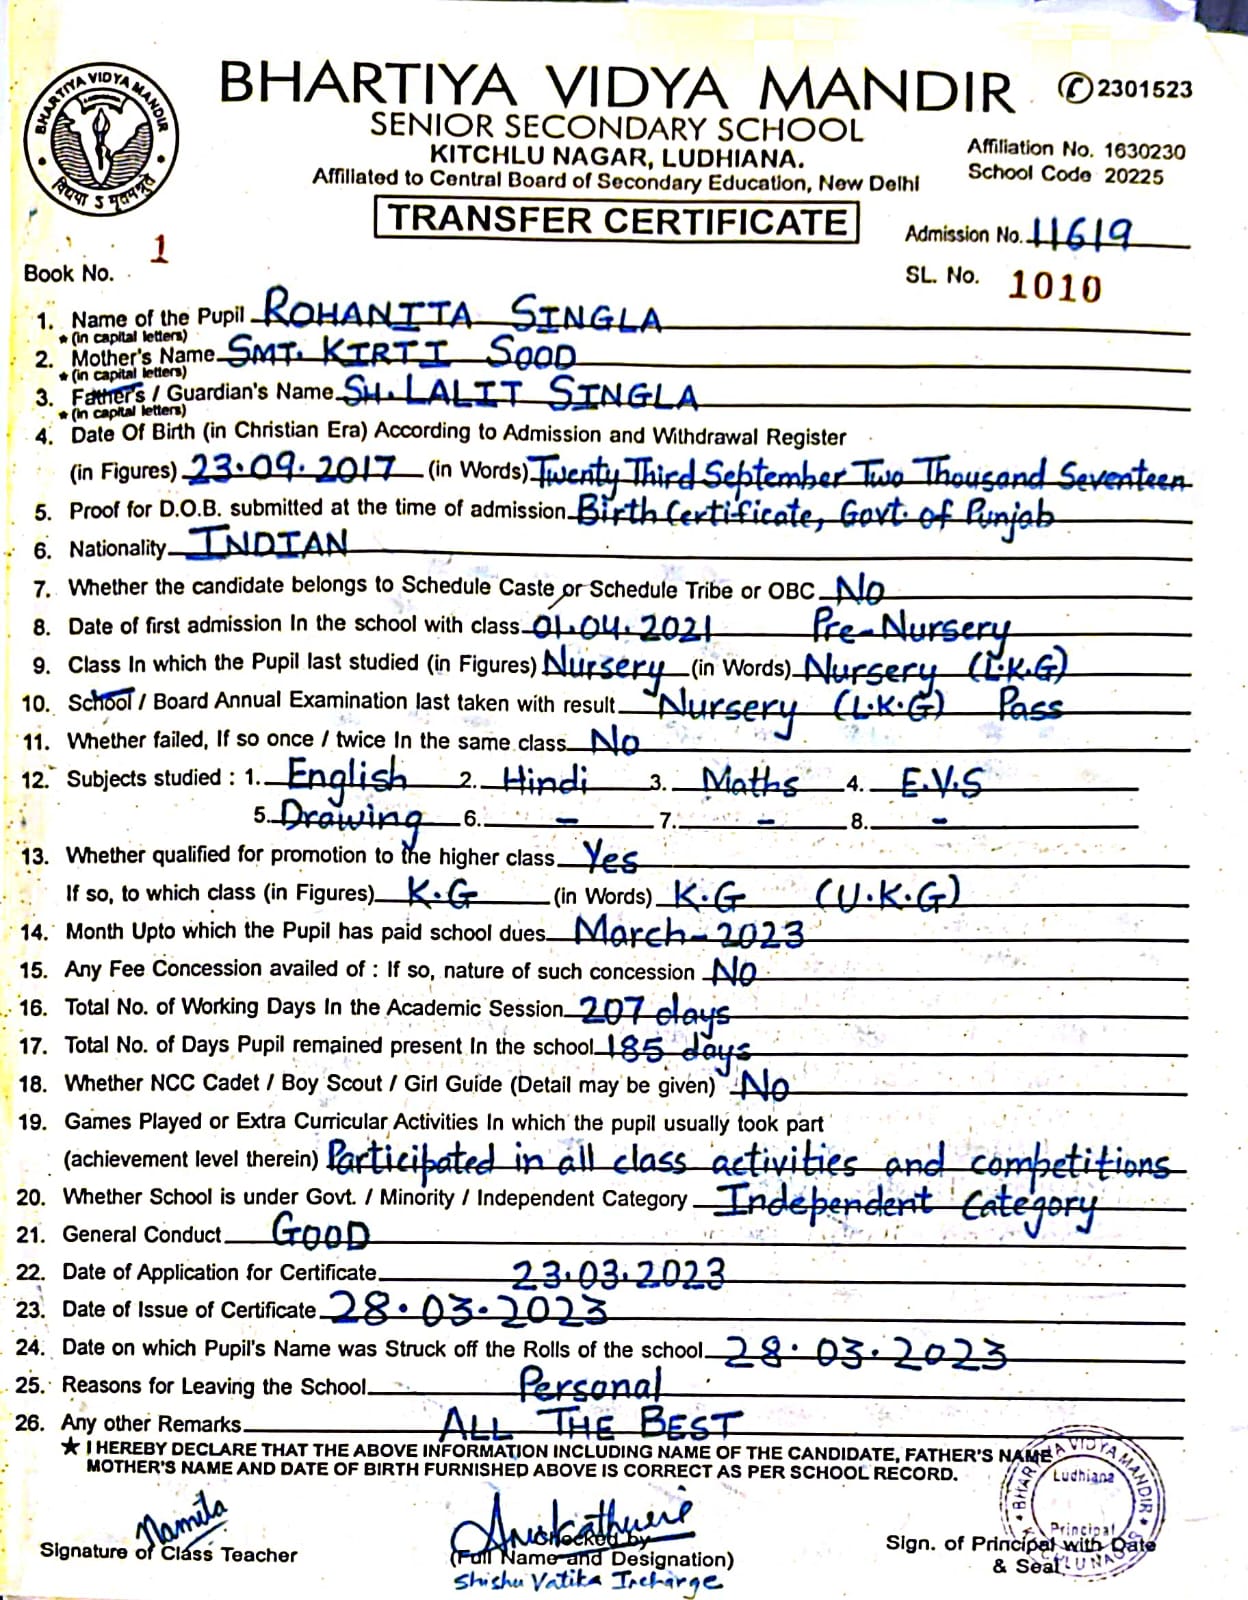 BHARTIYA VIDYA MANDIR
विद्यया ऽ मृतमश्नुते
BHARTIYA VIDYA MANDIR
✆2301523
SENIOR SECONDARY SCHOOL
KITCHLU NAGAR, LUDHIANA.
Affiliation No. 1630230
Affiliated to Central Board of Secondary Education, New Delhi
School Code 20225
TRANSFER CERTIFICATE
Admission No. 11619
Book No. 1
SL. No. 1010
1. Name of the Pupil ROHANITA SINGLA
* (in capital letters)
2. Mother's Name SMT. KIRTI SOOD
* (in capital letters)
3. Father's / Guardian's Name SH. LALIT SINGLA
* (in capital letters)
4. Date Of Birth (in Christian Era) According to Admission and Withdrawal Register
(in Figures) 23.09.2017 (in Words) Twenty Third September Two Thousand Seventeen
5. Proof for D.O.B. submitted at the time of admission Birth Certificate, Govt. of Punjab
6. Nationality INDIAN
7. Whether the candidate belongs to Schedule Caste or Schedule Tribe or OBC No
8. Date of first admission In the school with class 01.04.2021 Pre-Nursery
9. Class In which the Pupil last studied (in Figures) Nursery (in Words) Nursery (L.K.G)
10. School / Board Annual Examination last taken with result Nursery (L.K.G) Pass
11. Whether failed, If so once / twice In the same class No
12. Subjects studied : 1. English 2. Hindi 3. Maths 4. E.V.S
5. Drawing 6. - 7. - 8. -
13. Whether qualified for promotion to the higher class Yes
If so, to which class (in Figures) K.G (in Words) K.G (U.K.G)
14. Month Upto which the Pupil has paid school dues March-2023
15. Any Fee Concession availed of : If so, nature of such concession No
16. Total No. of Working Days In the Academic Session 207 days
17. Total No. of Days Pupil remained present In the school 185 days
18. Whether NCC Cadet / Boy Scout / Girl Guide (Detail may be given) No
19. Games Played or Extra Curricular Activities In which the pupil usually took part
(achievement level therein) Participated in all class activities and competitions
20. Whether School is under Govt. / Minority / Independent Category Independent Category
21. General Conduct GOOD
22. Date of Application for Certificate 23.03.2023
23. Date of Issue of Certificate 28.03.2023
24. Date on which Pupil's Name was Struck off the Rolls of the school 28.03.2023
25. Reasons for Leaving the School Personal
26. Any other Remarks ALL THE BEST
★ I HEREBY DECLARE THAT THE ABOVE INFORMATION INCLUDING NAME OF THE CANDIDATE, FATHER'S NAME
MOTHER'S NAME AND DATE OF BIRTH FURNISHED ABOVE IS CORRECT AS PER SCHOOL RECORD.
Namita
Signature of Class Teacher
Checked by
(Full Name and Designation)
Shishu Vatika Incharge
BHARTIYA VIDYA MANDIR
Ludhiana
Principal
Sign. of Principal with Date
& Seal